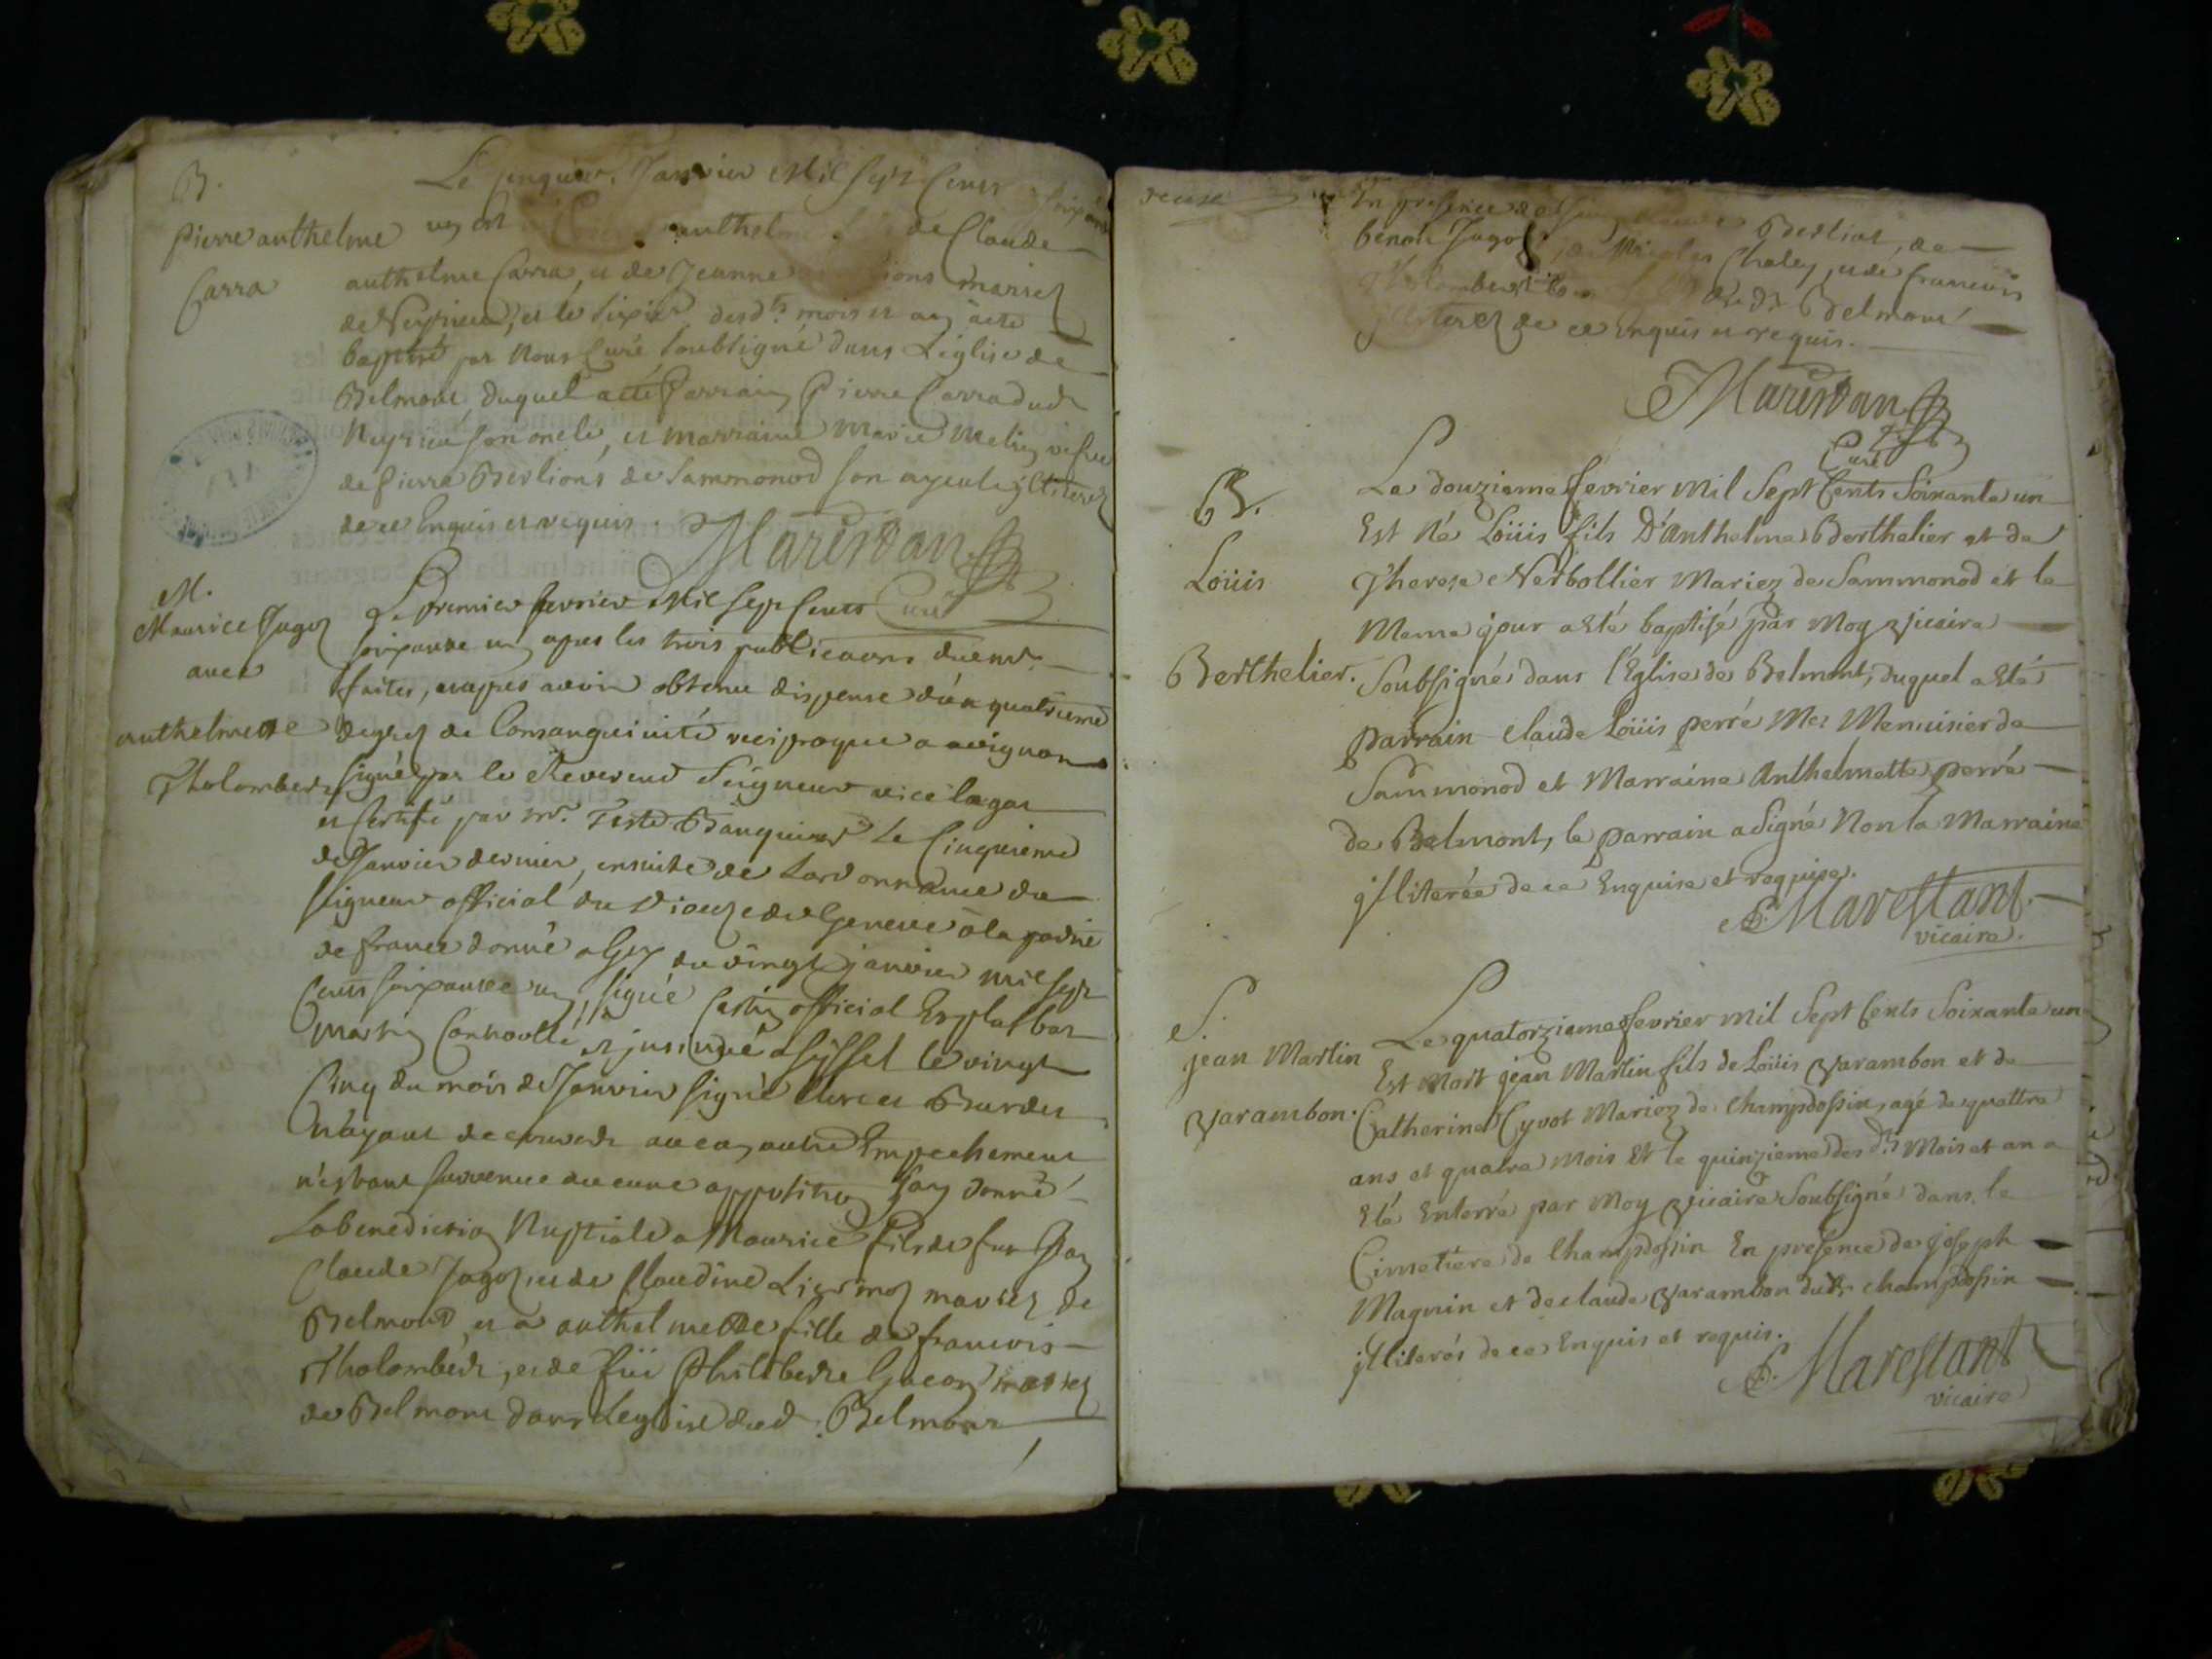 B.
Pierre anthelme
Carra
Le cinquie. Janvier Mil Sept Cents soixante
un est anthelme de Claude
anthelme Carra, et de Jeanne mariez
de Neyrieu, et le sixie desd.ts mois et an a eté
baptisé par Nous Curé soubsigné dans Leglise de
Belmont duquel a eté Parrain Pierre Carra dud.t
Neyrieu son oncle, et marraine Marie Melin vefve
de Pierre Berlions de Sammonod son ayeule jlliterez
de ce Enquis et requis. Marestan
Curé
M.
Maurice Jagoz
avec
anthelmette
Tholombert
Le Premier fevrier Mil Sept Cents
soixante un apres les trois publications duemt.
faites, et apres avoir obtenu dispense du quatrieme
degrez de Consanguinité reciproque a avignon
signé par le Reverend Seigneur vice legat
et Certifé par mr. Teste Banquier Le Cinquieme
de Janvier dernier, ensuite de Lordonnance du
seigneur official du Diocez de Geneve a la partie
de france donné a Gex du vingt janvier mil sept
Cents soixante un, signé Castin official Esplas bas
Martin et jnsinué a Seyssel le vingt
Cinq du mois de Janvier signé
N'ayant decouvert aucun autre Empechement
n'estant survenue aucune oppositon Jay donné
La benediction Nuptiale a Maurice fils de fut
Claude Jagoz, et de Claudine mariez de
Belmont, et a anthelmette fille de francois
Tholombert, et de füe Philiberte Gacon mariez
de Belmont dans Leglise dud. Belmont
En presence de Berliat, de
benoit Jagoz, de Nicolas Chaley, et de francois
Tholombert dud.t Belmont
jlliterez de ce Enquis et requis.
Marestan
Curé
B.
Loüis
Berthelier.
Le douzieme fevrier Mil Sept Cents Soixante un
Est Né Loüis fils D'Anthelme Berthelier et de
Therese Nerbollier Mariez de Sammonod et le
Meme jour a Eté baptisé par Moy vicaire
Soubsigné dans l'Eglise de Belmont, duquel a Eté
parrain Claude Loüis perré Me: Menuisier de
Sammonod et Marraine Anthelmette perré
de Belmont, le parrain a Signé Non la Marraine
jlliterée de ce Enquise et requise.
Marestant.
vicaire.
S.
jean Martin
Varambon.
Le quatorzieme fevrier mil Sept Cents Soixante un
Est Mort jean Martin fils de Loüis Varambon et de
Catherine Cyvot Mariez de Champdossin, agé de quattre
ans et quatre Mois Et le quinzieme des d.ts Mois et an a
Eté Enterré par Moy vicaire Soubsigné dans le
Cimetiere de Champdossin En presence de joseph
Magnin et de claude Varambon dud.t champdossin
jlliterés de ce Enquis et requis.
Marestant
vicaire